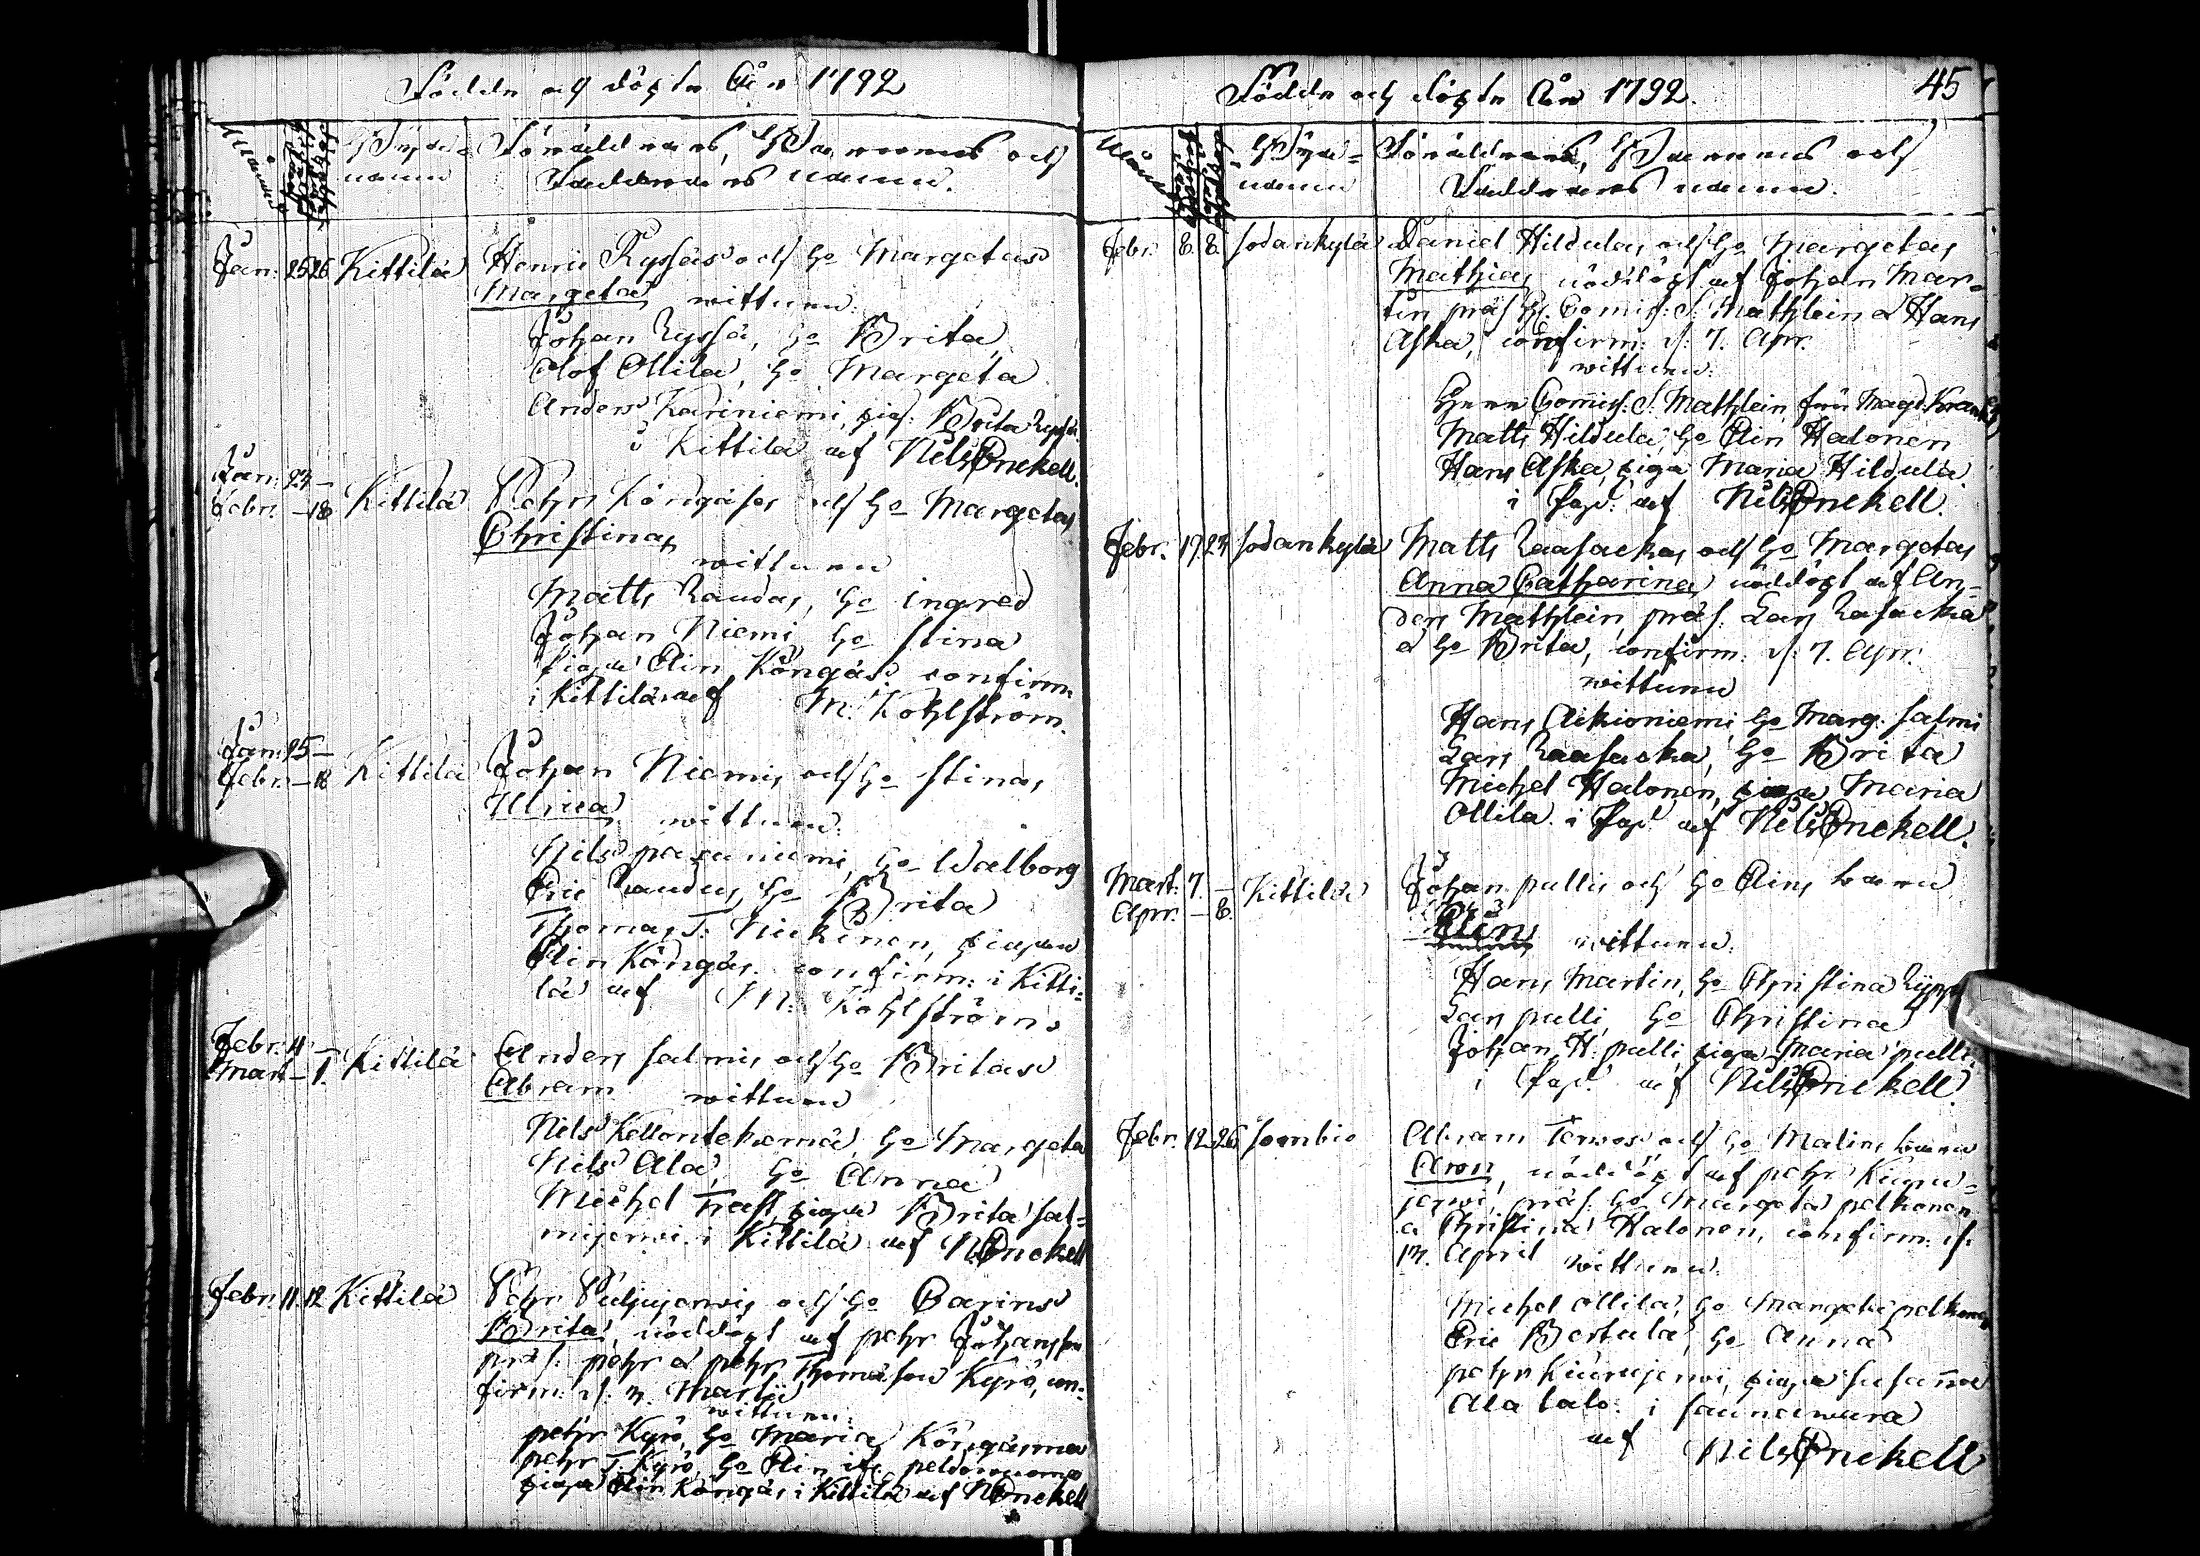 Födde och döpte År 1792
Månad
By's
namn
Föräldrars, Barnens och
Faddrars namn.
Jan. 25 26 Kittilä
Henric Ryssäs och ho Margetas
Margeta, wittnen
Johan Ryssä, ho Brita,
Olof Ollila, ho Margeta
Anders Kariniemi, pig. Brita Ryssä.
i Kittilä af Nils Enckell.
Jan. 24 –
Febr. – 18 Kittilä
Pehr Köngäses och ho Margetas
Christina,
wittnen
Matts Raudas, ho ingred
Johan Niemi, ho stina
piga Elin Köngäs. confirm.
i Kittilä af M. Kohlström.
Jan. 25 –
Febr. – 18 Kittilä
Johan Niemis och ho stinas
Ulrica wittnen.
Nils pasuniemi, ho Walborg
Eric Raudus, ho Brita
Thomas T. Nickinen, pigan
Elin Köngäs. confirm: i Kitti-
lä af M: Kohlström.
Febr. 4 –
Mart – 1. Kittilä
Anders salmis och ho Britas
Abram wittnen
Nils Kellontekemä, ho Margeta
Nils Ala, ho Anna
Michel Trast, piga Brita sal-
mijerwi. i Kittilä af N Enckell
Febr. 11 12 Kittilä
Pehr Puljujerwis och ho Carins
Brita, nöddöpt af pehr Johansson
præs. pehr & pehr Thomasson Kyrö, con-
firm. d. 3. Martii
wittnen.
pehr Kyrö, ho Maria Köngäsma
pehr T. Kyrö, ho Elin peldowuoma
piga Elin Köngäs i Kittilä af N Enckell
Födde och döpte År 1792. 45
Månad
By's
namn
Föräldrars, Barnens och
Faddrars namn.
Febr. 8. 8. sodankylä
Daniel Hildulas och ho Margetas
Mathias nöddöpt af Johan Mar-
tin præs. H. Commis: S: Mathlein & Hans
Aska, confirm: d: 7. Apr.
wittnen.
Herr Commis: S. Mathlein, fru Magd. Kranck
Matts Hildula, ho Elin Halonen
Hans Aska, piga Maria Hildula.
i Sod. af Nils Enckell.
Febr. 19 24 sodankylä
Matts Raasackas och ho Margetas
Anna Catharina nöddöpt af An-
ders Mathlein, præs. Lars Rasacka
& ho Brita, confirm: d: 7. Apr.
wittnen
Hans Aikioniemi, ho Marg. salmi
Lars Raasacka, ho Brita
Michel Halonen, piga Maria
Ollila. i Sod. af Nils Enckell.
Mart. 7. –
Apr. – 8. Kittilä
Johan pullis och ho Elins barn
Elin, wittnen.
Hans Martin, ho Christina
Lars pulli, ho Christina
Johan H. pulli, piga Maria pulli,
i Sod. af Nils Enckell.
Febr. 12 26 sombio
Abram Terwos och ho Malins barn
Aron, nöddöpt af pehr Kiuru-
jerwi, præs. ho Margeta pelkonen
& Christina Halonen, confirm. d.
April wittnen.
Michel Ollila, ho Margeta pelkonen
Eric Bertula, ho Anna
pehr Kiurujerwi, piga susanna
Ala talo. i saunawara
af Nils Enckell